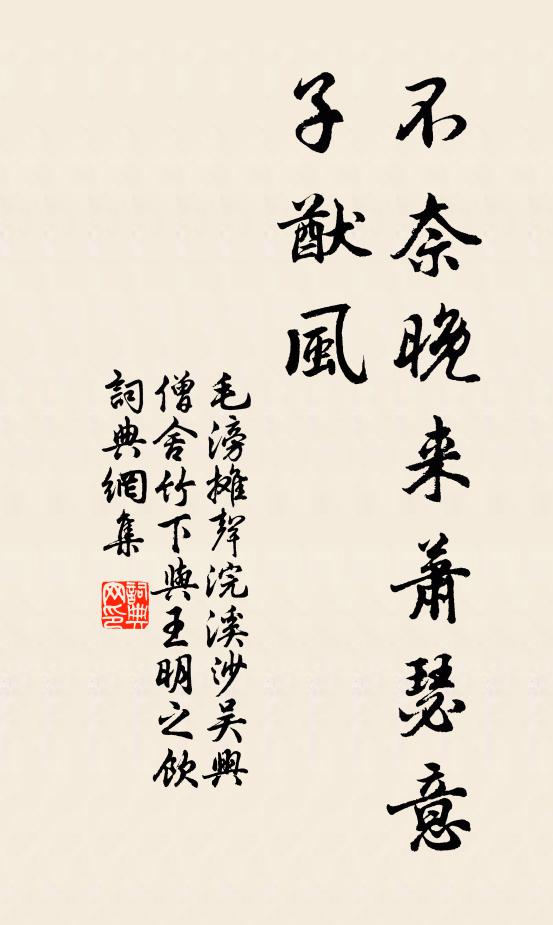 不奈晚来蕭瑟意
子猷風
毛滂攤聲浣溪沙吴興
僧舍竹下與王明之飲
詞典網集
詞典
网印